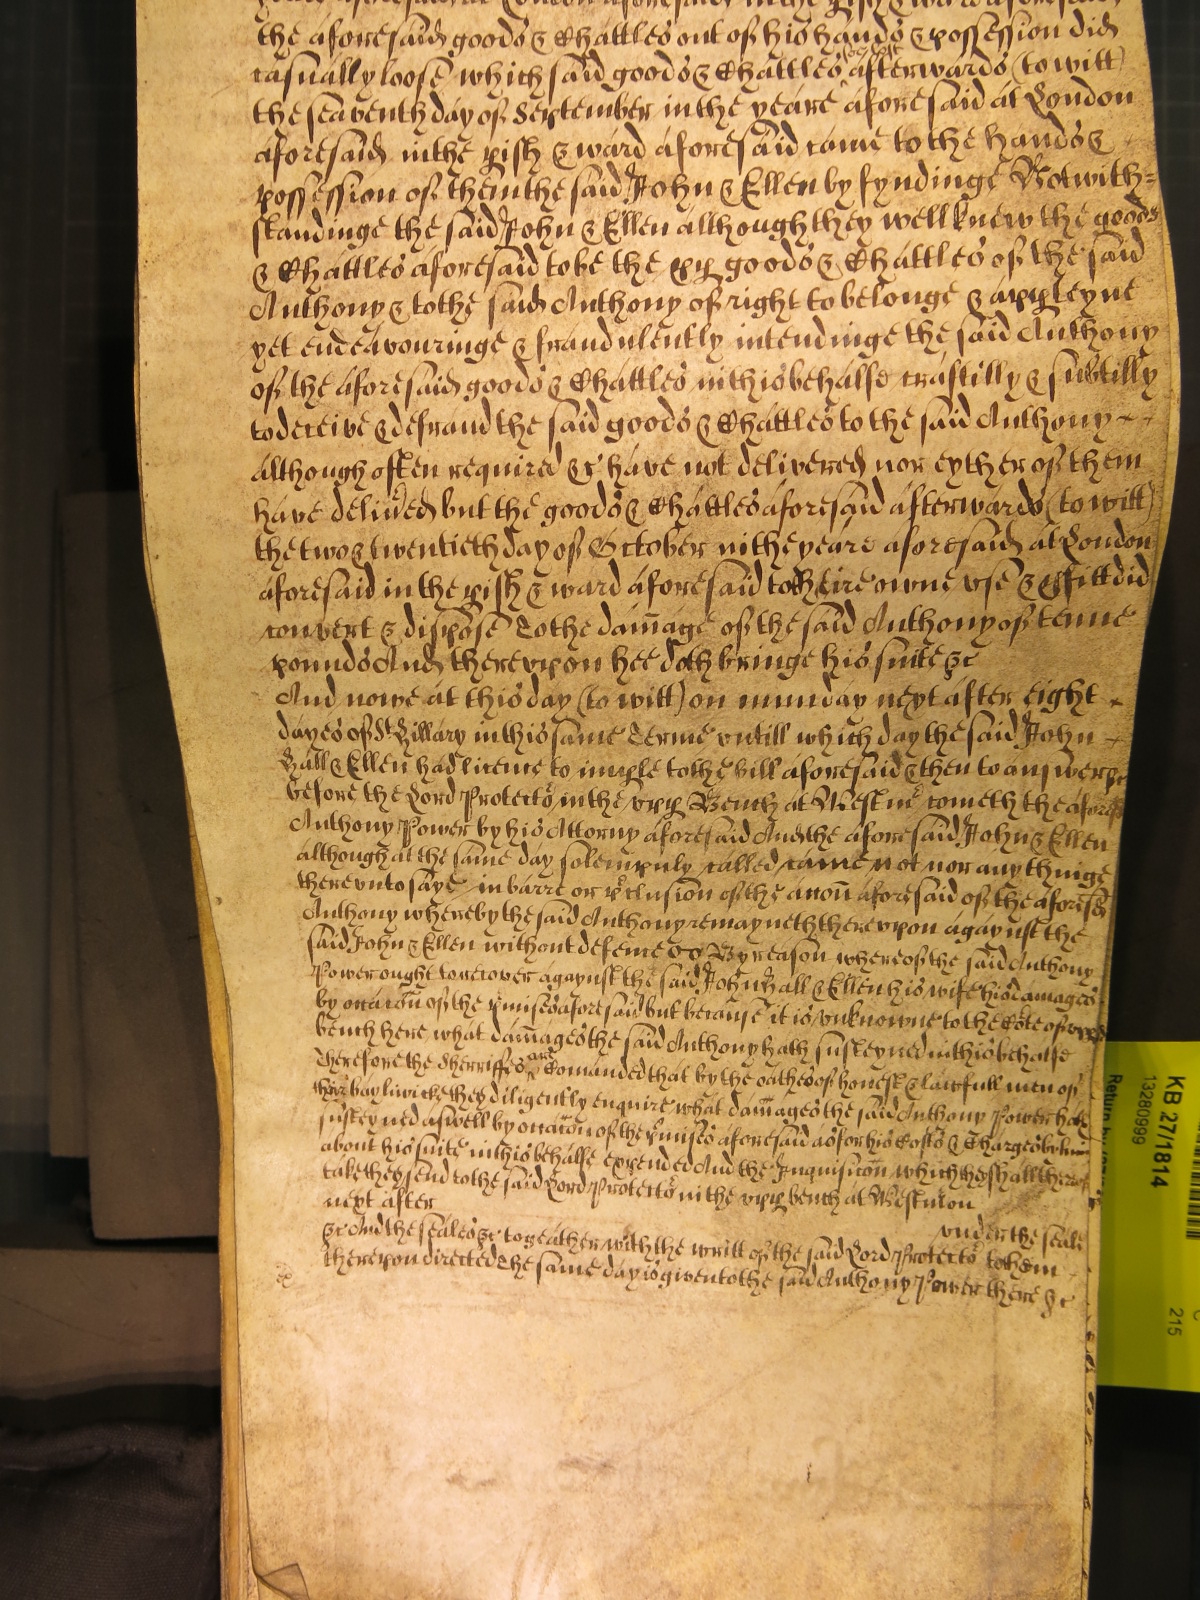 the aforesaid goods & Chattles out of his hands & possession did
casually loose which said goods & Chattles afterwards (to witt)
the seaventh day of September in the yeare aforesaid at London
aforesaid in the pish & ward aforesaid came to the hands &
possession of them the said John & Ellen by fyndinge Notwith=
standinge the said John & Ellen although they well knew the goods
& Chattles aforesaid to be the pp goods & Chattles of the said
Anthony & to the said Anthony of right to belonge & apperteyne
yet endeavouringe & fraudulently intendinge the said Anthony
of the aforesaid goods & Chattles in this behalfe craftilly & subtilly
to deceive & defraud the said goods & Chattles to the said Anthony
although often required &c have not delivered nor eyther of them
have delived but the goods & Chattles aforesaid afterwards (to witt)
the two & twentieth day of October in the yeare aforesaid at London
aforesaid in the pish & ward aforesaid to theire owne use & pfitt did
convert & dispose To the damage of the said Anthony of tenne
pounds And thereupon hee doth bringe his suite &c
And nowe at this day (to witt) on munday next after eight
dayes of St Hillary in this same Terme untill which day the said John
Hall & Ellen had licence to imple to the bill aforesaid & then to answere &c
before the Lord Protector in the upp Bench at Westmr cometh the aforesd
Anthony Power by his Attorny aforesaid And the aforesaid John & Ellen
although at the same day solempnly called came not nor any thinge
thereunto saye in barre or pclusion of the accon aforesaid of the aforesd
Anthony whereby the said Anthony remayneth thereupon agaynst the
said John & Ellen without defence By reason whereof the said Anthony
Power ought to recover agaynst the said John Hall & Ellen his wife his damages
by occacon of the pmises aforesaid but because it is unknowne to the Cote of upp
bench here what damages the said Anthony hath susteyned in this behalfe
Therefore the Sherriffes are Comanded that by the oathes of honest & lawfull men of
their bayliwicke they diligently enquire what damages the said Anthony Power hath
susteyned aswell by occacon of the pmises aforesaid as for his Costs & Charges by him
about his suite in this behalfe expended And the Inquisicon which they shall thereof
take they send to the said Lord Protector in the upp bench at Westmon
next after under the seale
&c And the seales &c togeather with the writt of the said Lord Protector to them
thereupon directed The same day is given to the said Anthony Power there &c
KB 27/1814
13280999
215